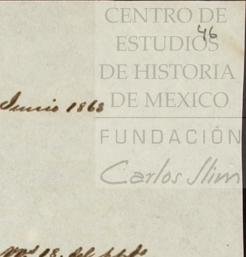 CENTRO DE
46
ESTUDIOS
DE HISTORIA
DE MEXICO
Junio 1868
FUNDACIÓN
Carlos Slim
18. del